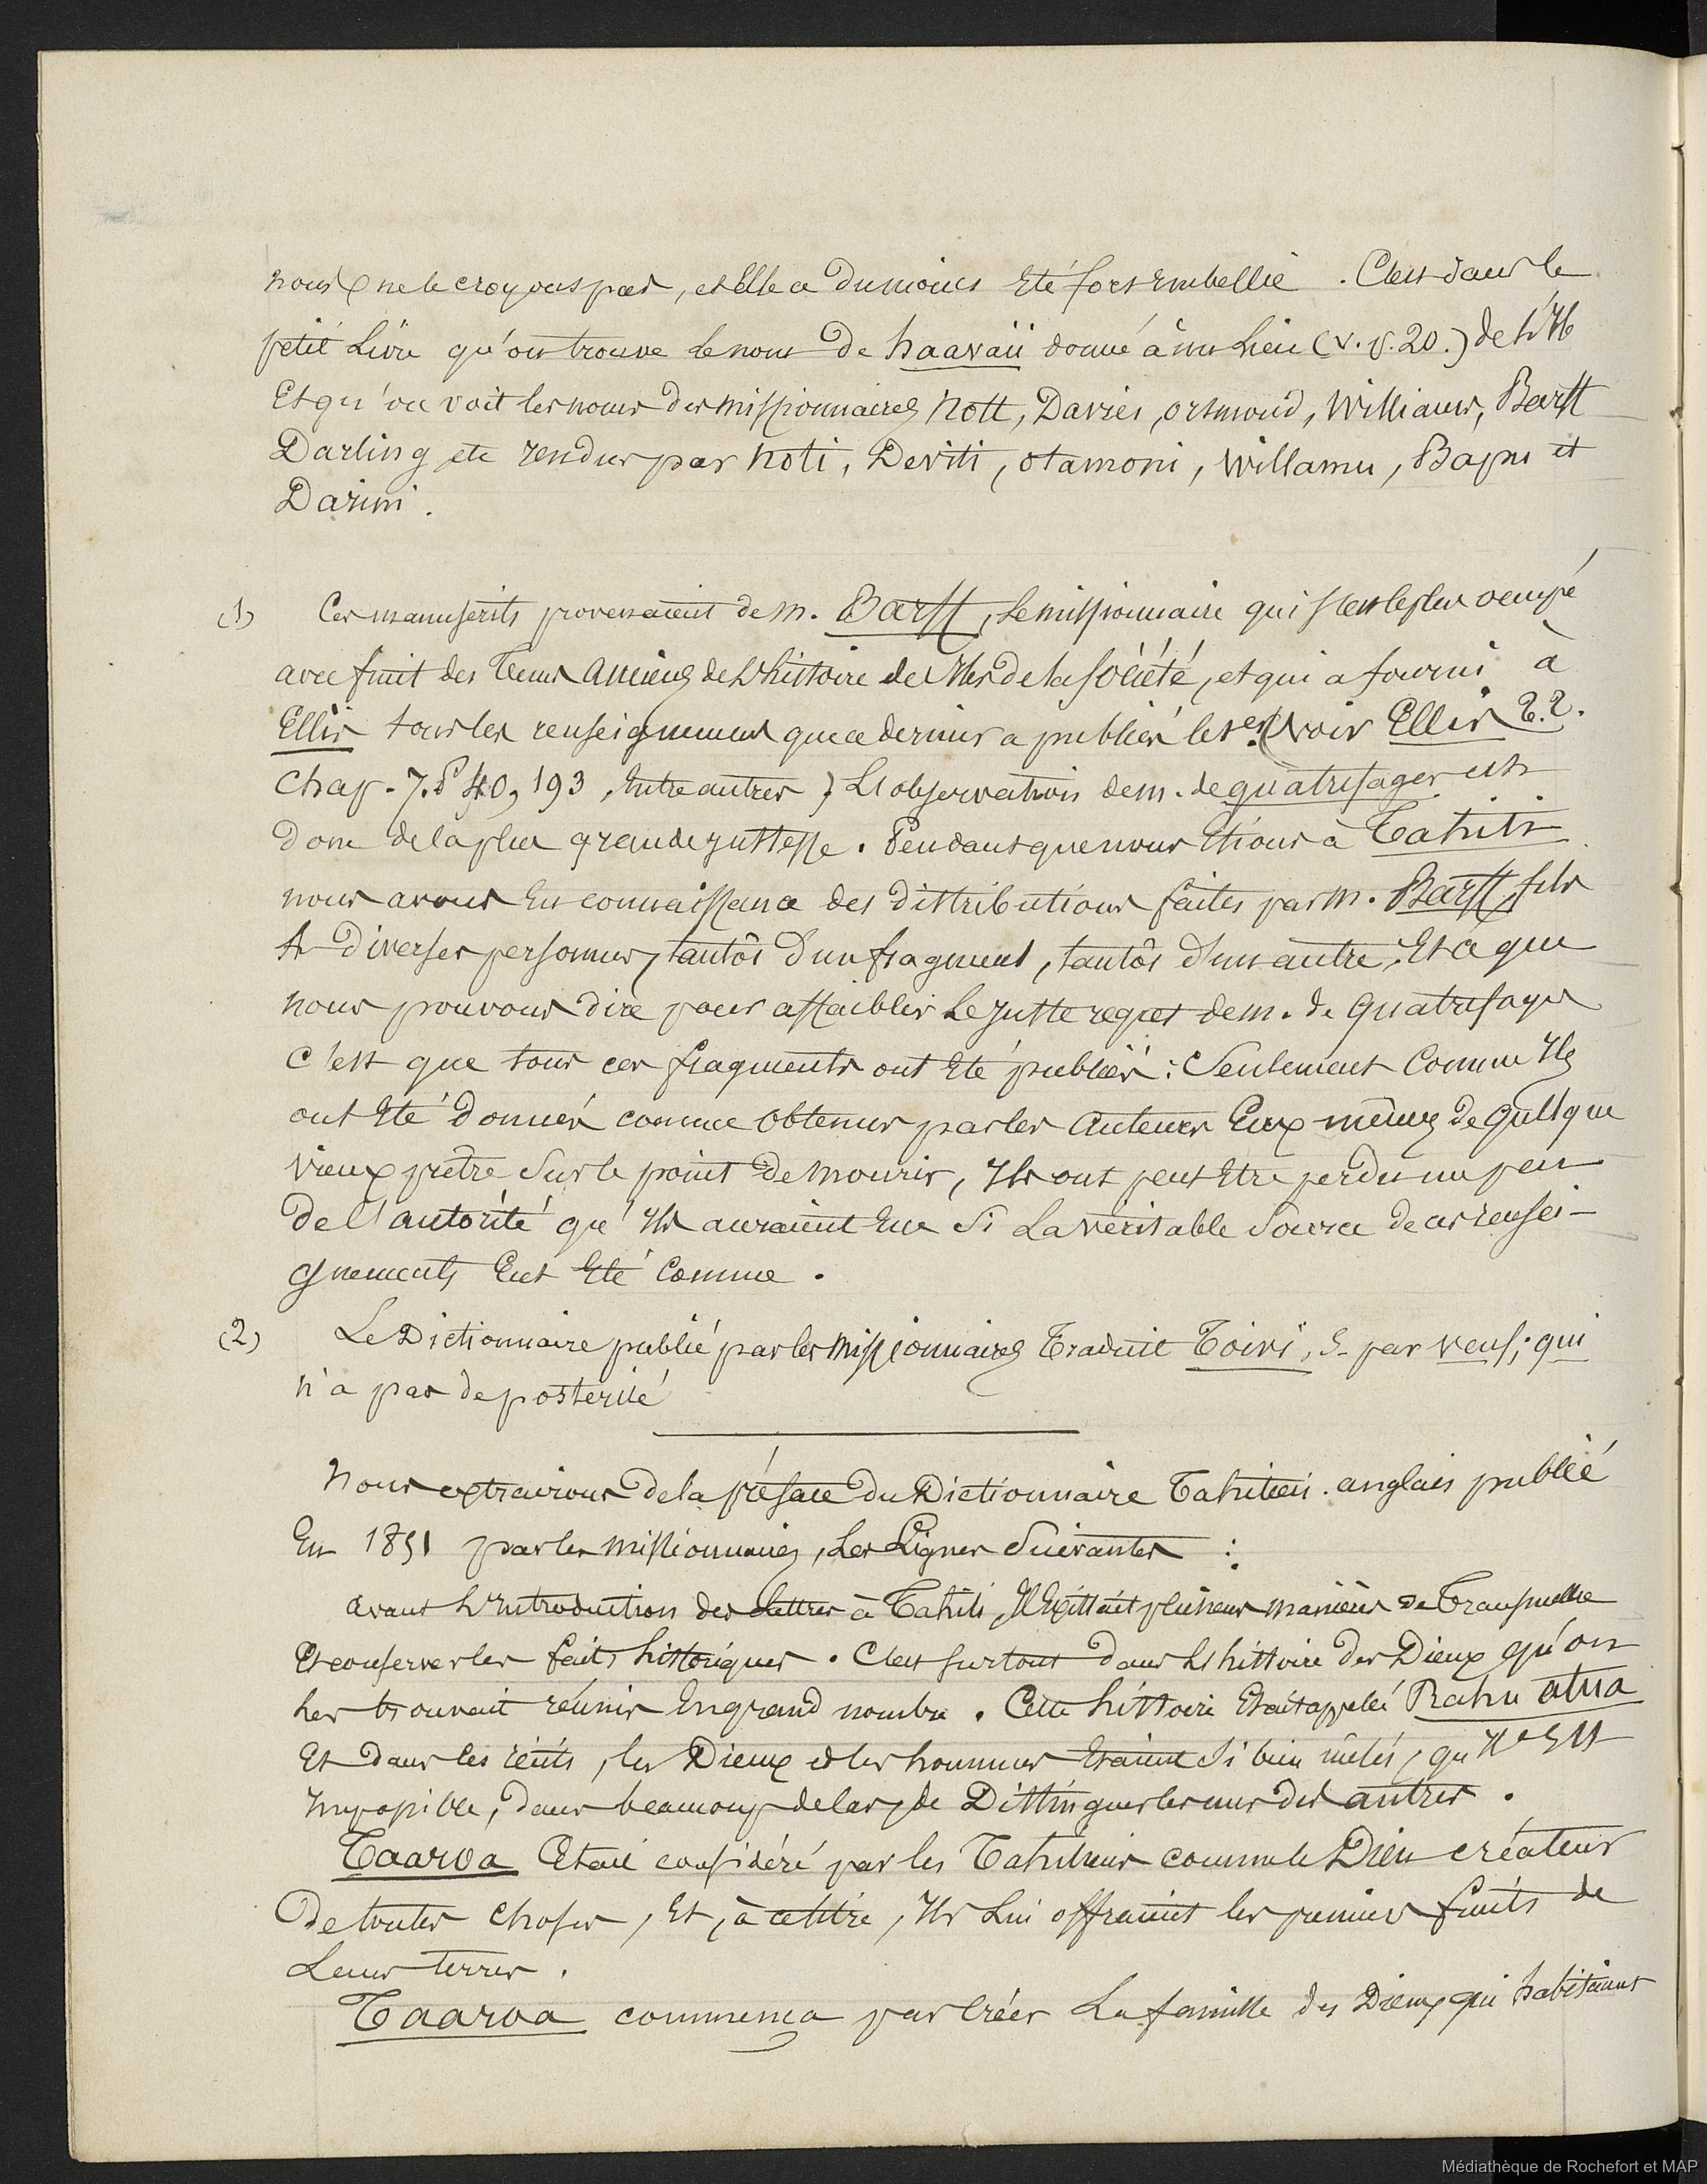 nous ne le croyons pas, et Elle a Du moins Eté fort Embellie. C'est dans le
petit Livre qu'on trouve le nom De haavaii donné à un Lieu (v. p. 20.) de l'Ile
Et qu'on voit les noms des missionnaires Nott, Davies, Orsmond, Williams, Barff
Darling etc rendus par Noti, Deviti, Otamoni, Willamu, Bapu et
Darini.
(1) Ces manuscrits provenaient de M. Barff, Le missionnaire qui s'est le plus occupé
avec fruit des Tems Anciens de L'histoire des Iles de la Société, et qui a fourni à
Ellis tous les renseignemens que ce dernier a publiés (voir Ellis T. 2.
Chap. 7. P 40, 193, Entre autres) L'observation de M. de quatrefages est
Donc de la plus grande justesse. Pendant que nous Etions à Tahiti
nous avons Eu connaissance des distributions faites par M. Barff, fils
A Diverses personnes, tantôt D'un fragment, tantôt d'un autre, Et ce que
nous pouvons dire pour affaiblir Le juste regret de M. de quatrefages
C'est que tous ces fragments ont Eté publiés: Seulement Comme Ils
ont Eté Donnés comme Obtenus par les Auteurs Eux mêmes De quelque
vieux prêtre Sur le point De Mourir, Ils ont peut Etre perdu un peu
De l'autorité qu'Ils auraient Eue Si La véritable Source de ces rensei-
gnements Eut Eté Connue.
(2) Le Dictionnaire publié par les Missionnaires Traduit Toivi, S. par veuf; qui
n'a pas de posterité
Nous extrairons De la préface Du Dictionnaire Tahitien. anglais publié
En 1851 par les Missionnaires, Les Lignes Suivantes:
Avant L'Introduction des Lettres à Tahiti, Il Existait plusieurs manières de Transmettre
Et conserver les faits historiques. C'est surtout Dans L'histoire Des Dieux qu'on
les trouvait réunis En grand nombre. Cette histoire Etait appelée Rahu atua
Et Dans les récits, les Dieux et les hommes Etaient Si bien mêlés, qu'Il Est
Impossible, Dans beaucoup de cas, de Distinguer les uns des autres.
Taaroa Etait considéré par les Tahitiens comme le Dieu créateur
De toutes Choses, Et, à ce titre, Ils Lui offraient les premiers fruits de
Leurs terres.
Taaroa commença par Créer La famille des Dieux qui habitaient
Médiathèque de Rochefort et MAP